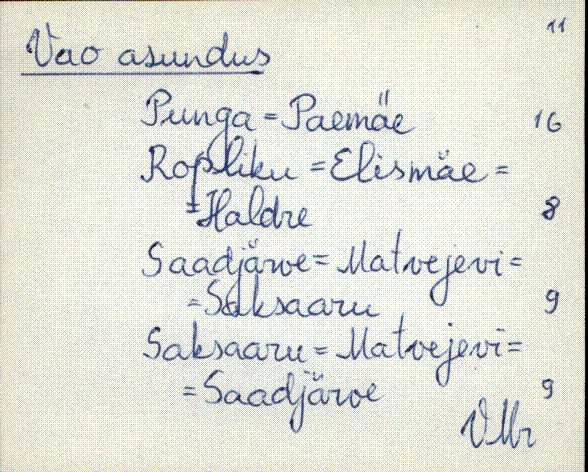 11
Vao asundus
Punga = Paemäe 16
Ropliku = Elismäe =
= Haldre 8
Saadjärve = Matvejevi =
= Saksaaru 9
Saksaaru = Matvejevi =
= Saadjärve 9
VMr